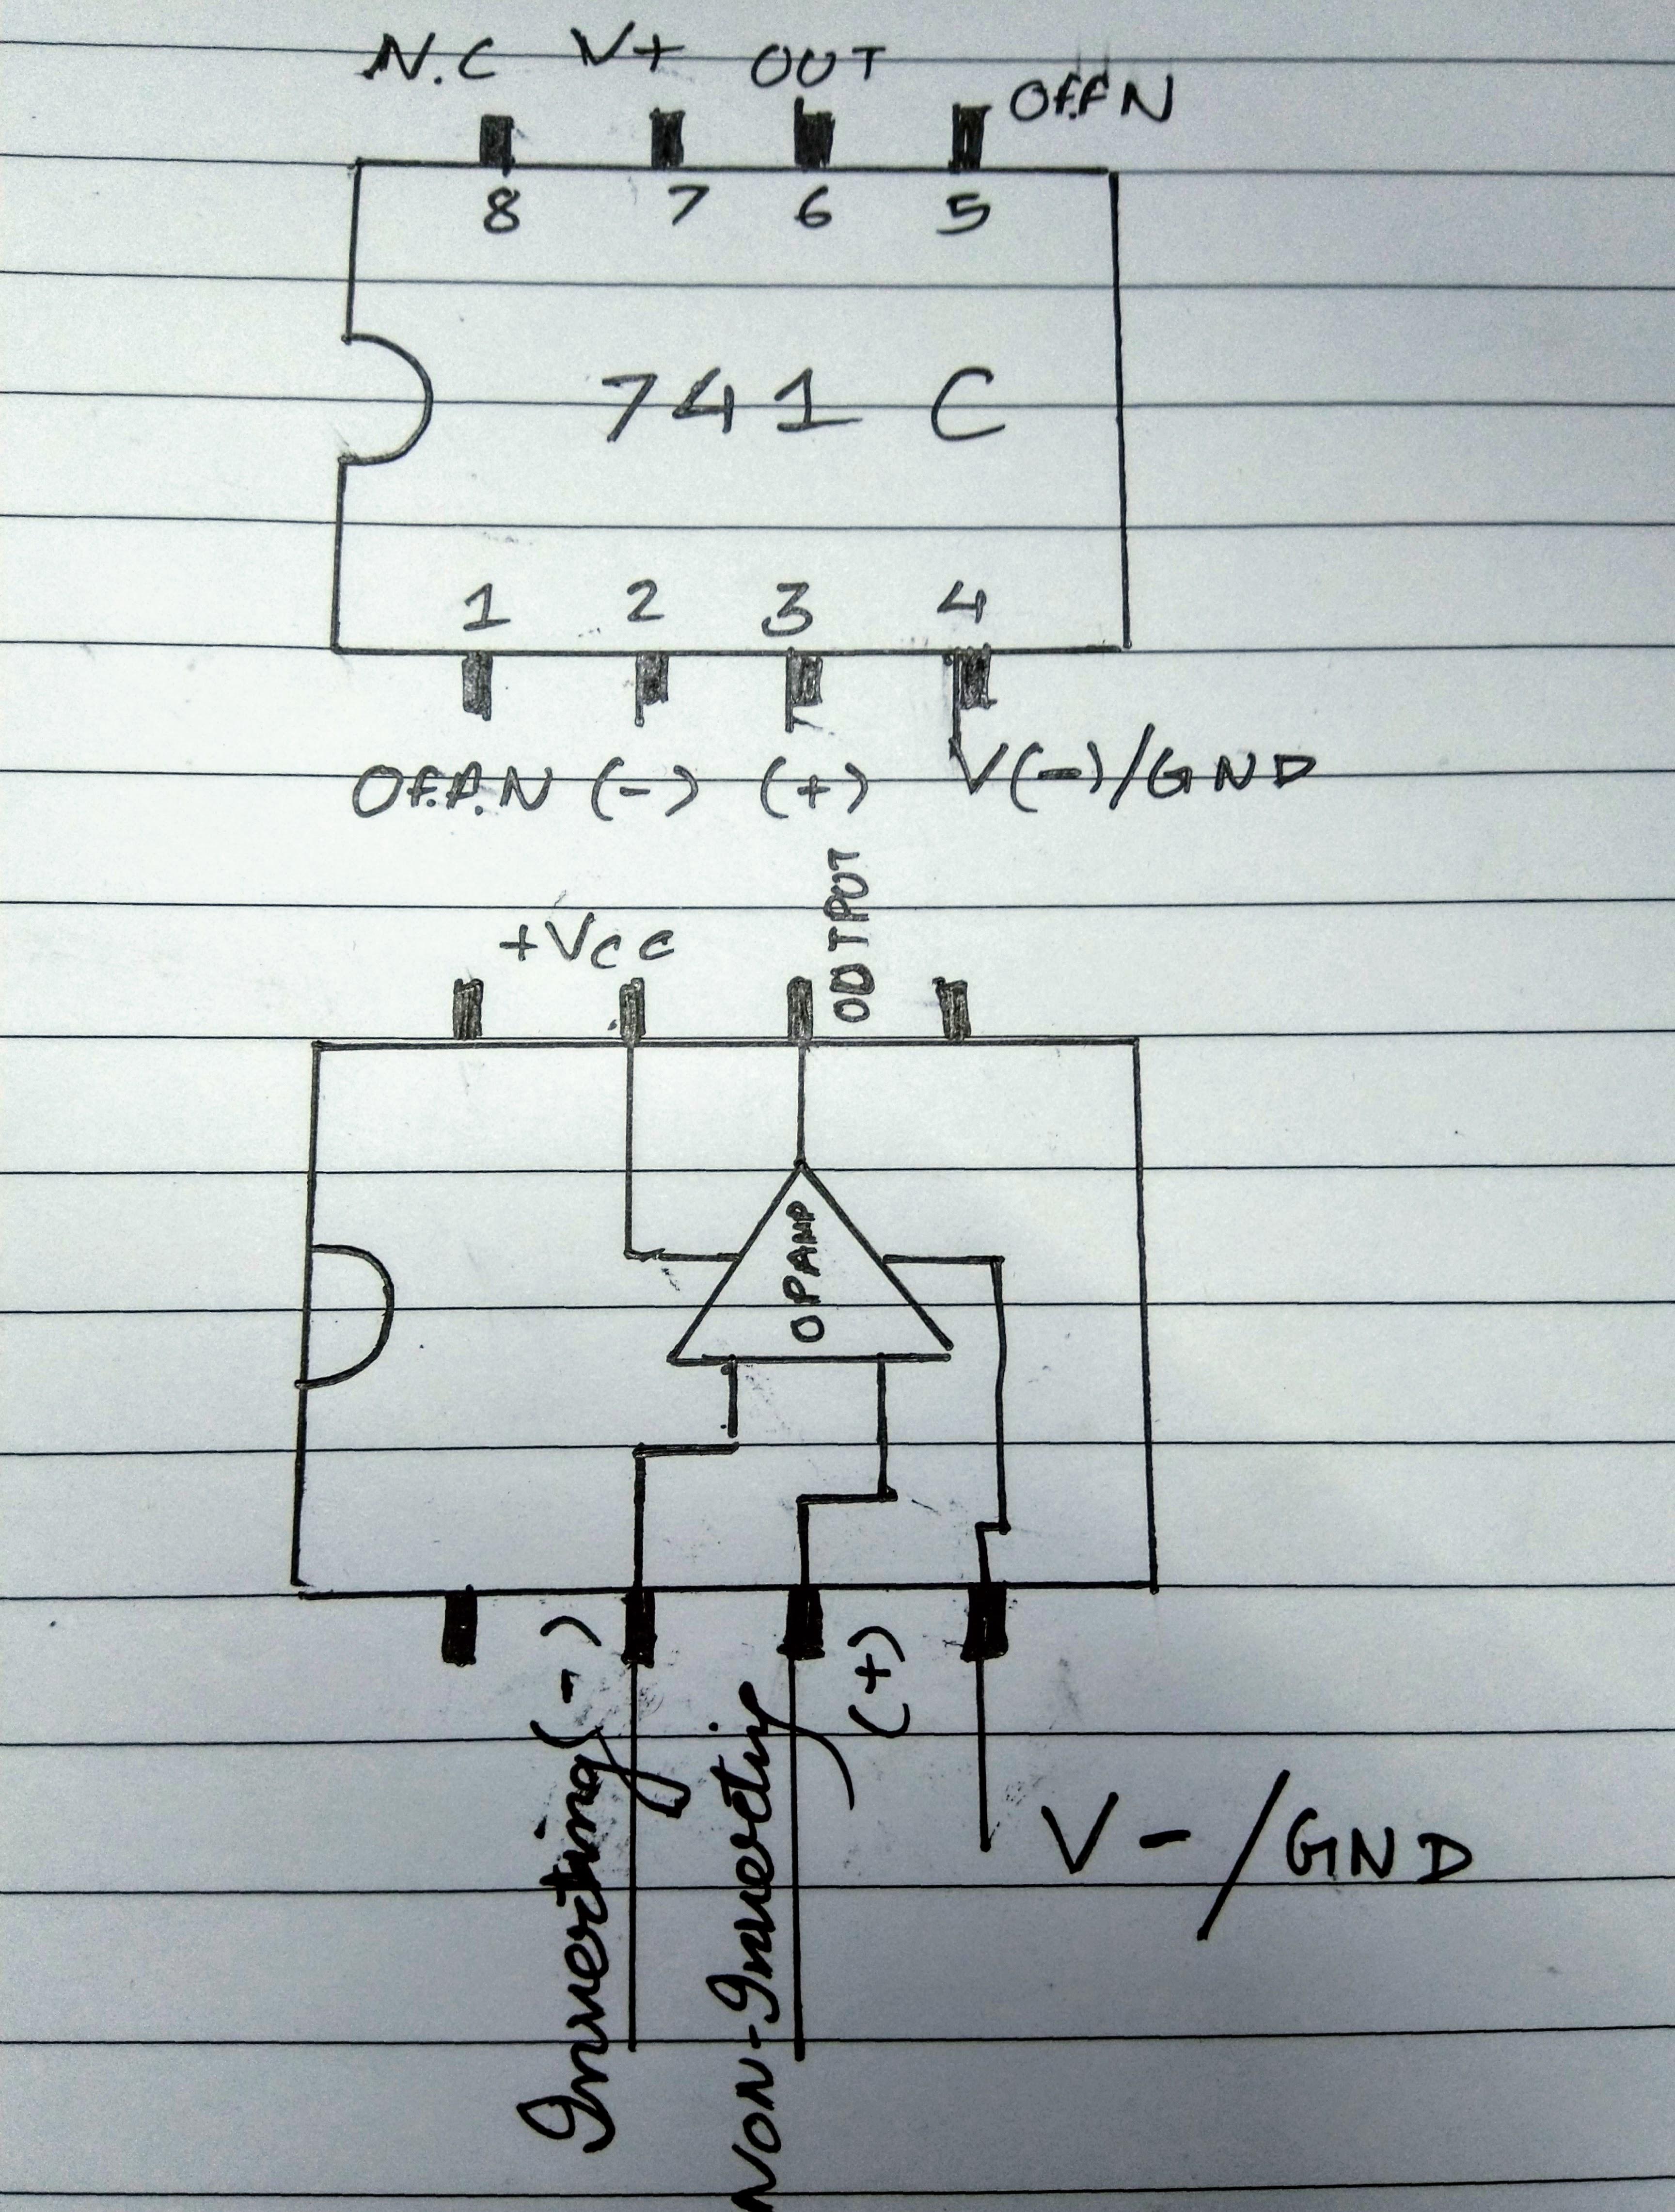 N.C V+ OUT OFF.N
8 7 6 5
741 C
1 2 3 4
OFF.N (-) (+) V(-)/GND
+Vcc OUTPUT
OPAMP
Inverting (-) NON-Inverting (+) V-/GND